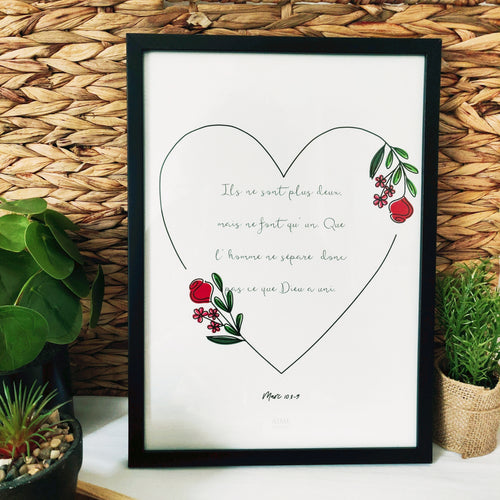 Ils ne sont plus deux,
mais ne font qu'un. Que
l'homme ne sépare donc
pas ce que Dieu a uni.
Marc 10:8-9